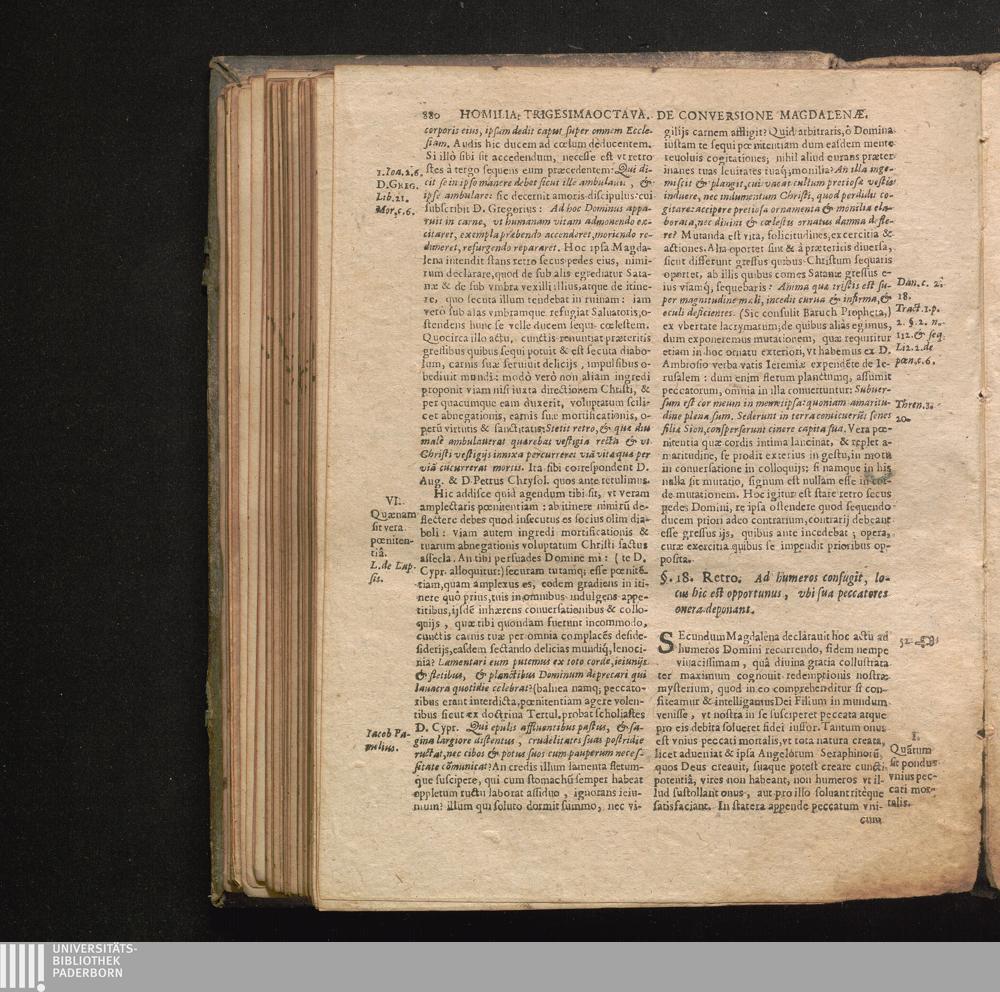 880 HOMILIA TRIGESIMAOCTAVA. DE CONVERSIONE MAGDALENÆ.
corporis eius, ipsum dedit caput super omnem Eccle-
siam. Audis hic ducem ad cœlum deducentem.
Si illò sibi sit accedendum, necesse est vt retro
stes à tergo sequens eum præcedentem: Qui di-
cit se in ipso manere debet sicut ille ambulauit, &
ipse ambulare: sic decernit amoris discipulus: cui
subscribit D. Gregorius: Ad hoc Dominus appa-
ruit in carne, vt humanam vitam admonendo ex-
citaret, exempla præbendo accenderet, moriendo re-
dimeret, resurgendo repararet. Hoc ipsa Magda-
lena intendit stans retro secus pedes eius, nimi-
rum declarare, quod de sub alis egrediatur Sata-
næ & de sub vmbra vexilli illius, atque de itine-
re, quo secuta illum tendebat in ruinam: iam
verò sub alas vmbramque refugiat Saluatoris, o-
stendens hunc se velle ducem sequi cœlestem.
Quocirca illo actu, cunctis renuntiat præteritis
gressibus quibus sequi potuit & est secuta diabo-
lum, carnis suæ seruiuit delicijs, impulsibus o-
bediuit mundi: modò verò non aliam ingredi
proponit viam nisi iuxta directionem Christi, &
per quacumque eam duxerit, voluptatum scili-
cet abnegationis, carnis suæ mortificationis, o-
perū virtutis & sanctitatis: Stetit retro, & quæ diu
malè ambulauerat quærebat vestigia recta & vt
Christi vestigijs innixa percurreret viā vitæ quæ per
viā cucurrerat mortis. Ita sibi correspondent D.
Aug. & D. Petrus Chrysol. quos ante retulimus.
Hic addisce quid agendum tibi sit, vt veram
amplectaris pœnitentiam: ab itinere nimirū de-
flectere debes quod insecutus es socius olim dia-
boli: viam autem ingredi mortificationis &
tuarum abnegationis voluptatum Christi factus
assecla. An tibi persuades Domine mi: (te D.
Cypr. alloquitur:) securam tutamq; esse pœnitē-
tiam, quam amplexus es, eodem gradiens in iti-
nere quò prius, tuis in omnibus indulgens appe-
titibus, ijsdē inhærens conuersationibus & collo-
quijs, quæ tibi quondam fuerunt incommodo,
cunctis carnis tuæ per omnia complacēs deside-
siderijs, easdem sectando delicias mundiq́, lenoci-
nia? Lamentari eum putemus ex toto corde, ieiunijs
& fletibus, & planctibus Dominum deprecari qui
lauacra quotidie celebrat? (balnea namq; peccato-
ribus erant interdicta, pœnitentiam agere volen-
tibus sicut ex doctrina Tertul. probat scholiastes
D. Cypr. Qui epulis affluentibus pastus, & sa-
gina largiore distentus, cruditates suas postridie
ructat, nec cibos & potus suos cum pauperum neces-
sitate cōmunicat? An credis illum lamenta fletum-
que suscipere, qui cum stomachū semper habeat
oppletum ructu laborat assiduo, ignorans ieiu-
nium? illum qui soluto dormit summo, nec vi-
1. Ioa. 2. 6.
D. GREG.
Lib. 21.
Mor. c. 6.
VI.
Quænam
sit vera
pœniten-
tiâ.
L. de Lap-
sis.
Iacob Pa-
mulius.
gilijs carnem affligit? Quid arbitraris, ô Domina
iustam te sequi pœnitentiam dum easdem mente
reuoluis cogitationes; nihil aliud curans præter
inanes tuas leuitates tuaq; monilia? An illa inge-
miscit & plangit, cui vacat cultum pretiosæ vestis
induere, nec indumentum Christi, quod perdidit co-
gitare: accipere pretiosa ornamenta & monilia ela-
borata, nec diuini & cœlestis ornatus damna defle-
re? Mutanda est vita, solicitudines, exercitia &
actiones. Alia oportet sint & à præteritis diuersa,
sicut differunt gressus quibus Christum sequaris
oportet, ab illis quibus comes Satanæ gressus e-
ius viamq́, sequebaris: Anima quæ tristis est su-
per magnitudine mali, incedit curua & infirma, &
oculi deficientes. (Sic consulit Baruch Propheta,)
ex vbertate lacrymarum; de quibus aliàs egimus,
dum exponeremus mutationem, quæ requiritur
etiam in hoc ornatu exteriori, vt habemus ex D.
Ambrosio verba vatis Ieremiæ expendēte de Ie-
rusalem: dum enim fletum planctumq, assumit
peccatorum, omnia in illa conuertuntur: Subuer-
sum est cor meum in memetipsa: quoniam amaritu-
dine plena sum. Sederunt in terra conticuerūt senes
filiæ Sion, consperserunt cinere capita sua. Vera pœ-
nitentia quæ cordis intima lancinat, & replet a-
maritudine, se prodit exterius in gestu, in motu
in conuersatione in colloquijs: si namque in his
nulla sit mutatio, signum est nullam esse in cor-
de mutationem. Hoc igitur est stare retro secus
pedes Domini, re ipsa ostendere quod sequendo
ducem priori adeo contrarium, contrarij debeant
esse gressus ijs, quibus ante incedebat; opera,
curæ exercitia quibus se impendit prioribus op-
posita.
§. 18. Retro. Ad humeros confugit, lo-
cus hic est opportunus, vbi sua peccatores
onera deponant.
SEcundum Magdalena declarauit hoc actu ad
humeros Domini recurrendo, fidem nempe
viuacissimam, quâ diuina gratia collustrata
ter maximum cognouit redemptionis nostræ
mysterium, quod in eo comprehenditur si con-
fiteamur & intelligamus Dei Filium in mundum
venisse, vt nostra in se susciperet peccata atque
pro eis debita solueret fidei iussor. Tantum onus
est vnius peccati mortalis, vt tota natura creata,
licet adueniat & ipsa Angelorum Seraphinorū,
quos Deus creauit, suaque potest creare cuncti-
potentiâ, vires non habeant, non humeros vt il-
lud sustollant onus, aut pro illo soluant ritèque
satisfaciant. In statera appende peccatum vni-
cum
Dan. c. 2.
18.
Tract. 1. p.
2. §. 2. n.
112. & seq.
Lib. 2. de
pœn. c. 6.
Thren. 3.
20.
8.
Quātum
sit pondus
vnius pec-
cati mor-
talis.
UNIVERSITÄTS-
BIBLIOTHEK
PADERBORN